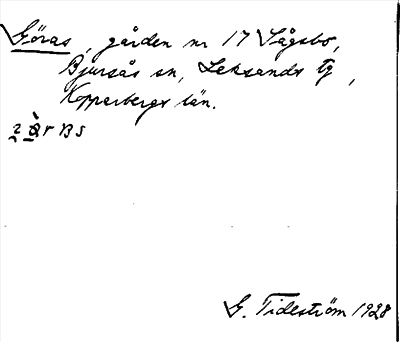 Göras, gården nr 17 Sågsbo,
Bjursås sn, Leksands tg,
Kopparbergs län.
BS
G. Tideström 1928